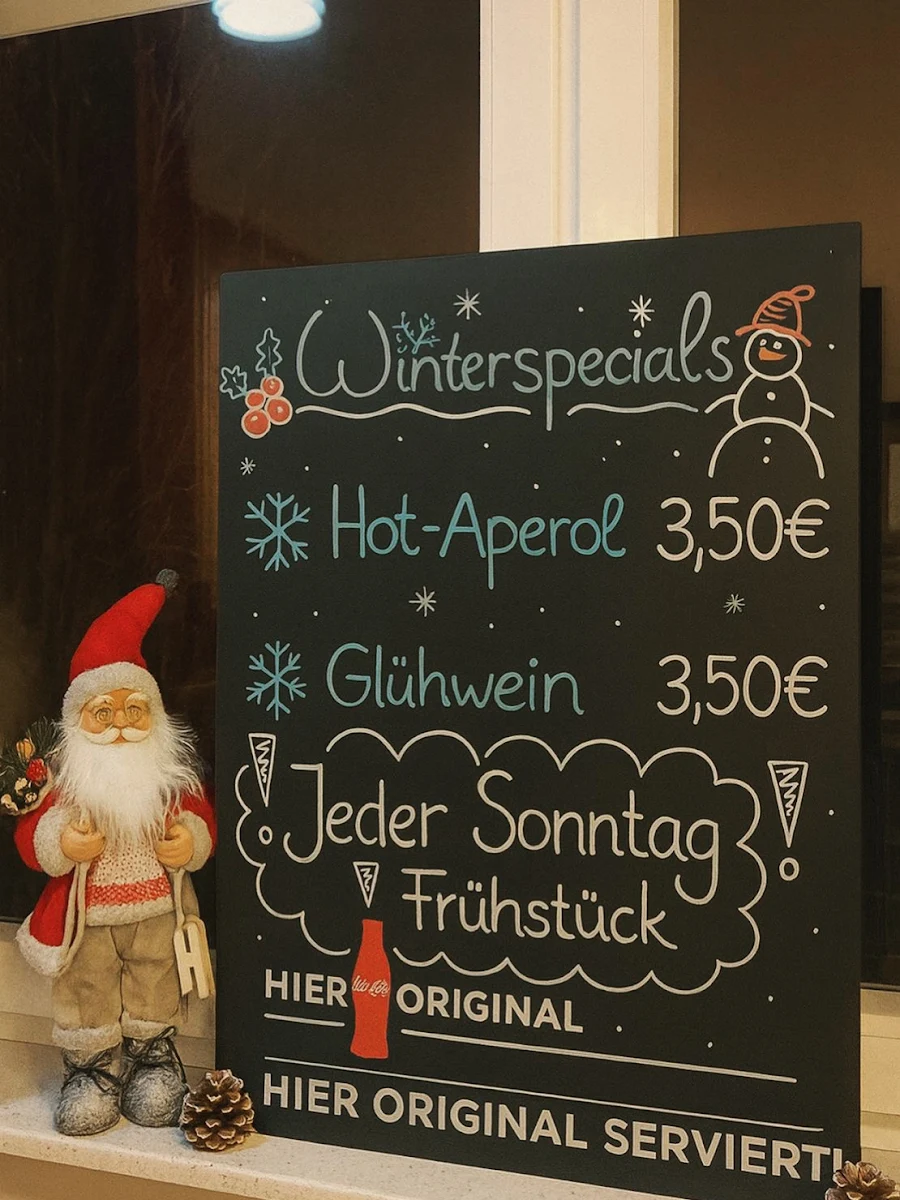 Winterspecials
Hot-Aperol 3,50€
Glühwein 3,50€
Jeder Sonntag
Frühstück
HIER ORIGINAL
HIER ORIGINAL SERVIERT!